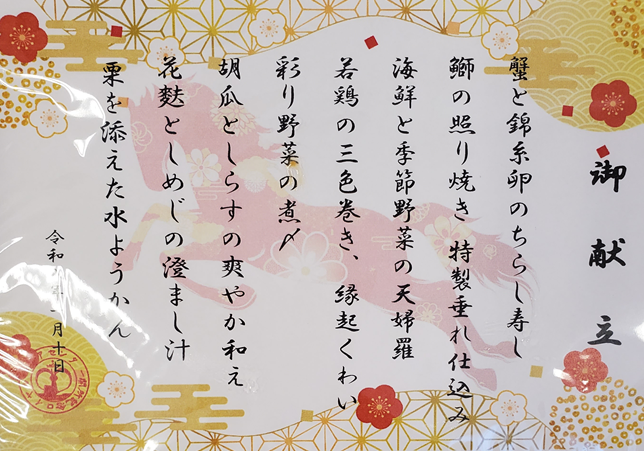 御献立
蟹と錦糸卵のちらし寿し
鰤の照り焼き 特製垂れ仕込み
海鮮と季節野菜の天婦羅
若鶏の三色巻き、縁起くわい
彩り野菜の煮〆
胡瓜としらすの爽やか和え
花麩としめじの澄まし汁
栗を添えた水ようかん
令和 年一月十日